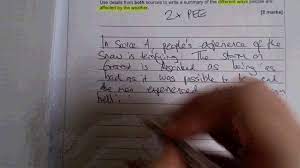 Use details from both sources to write a summary of the different ways people are
affected by the weather.
[8 marks]
2x PEE
In Source A, people's experience of the
Snow is terrifying. The storm on
Everest is described as being as
bad as it was possible to be and
the men experienced
hell".